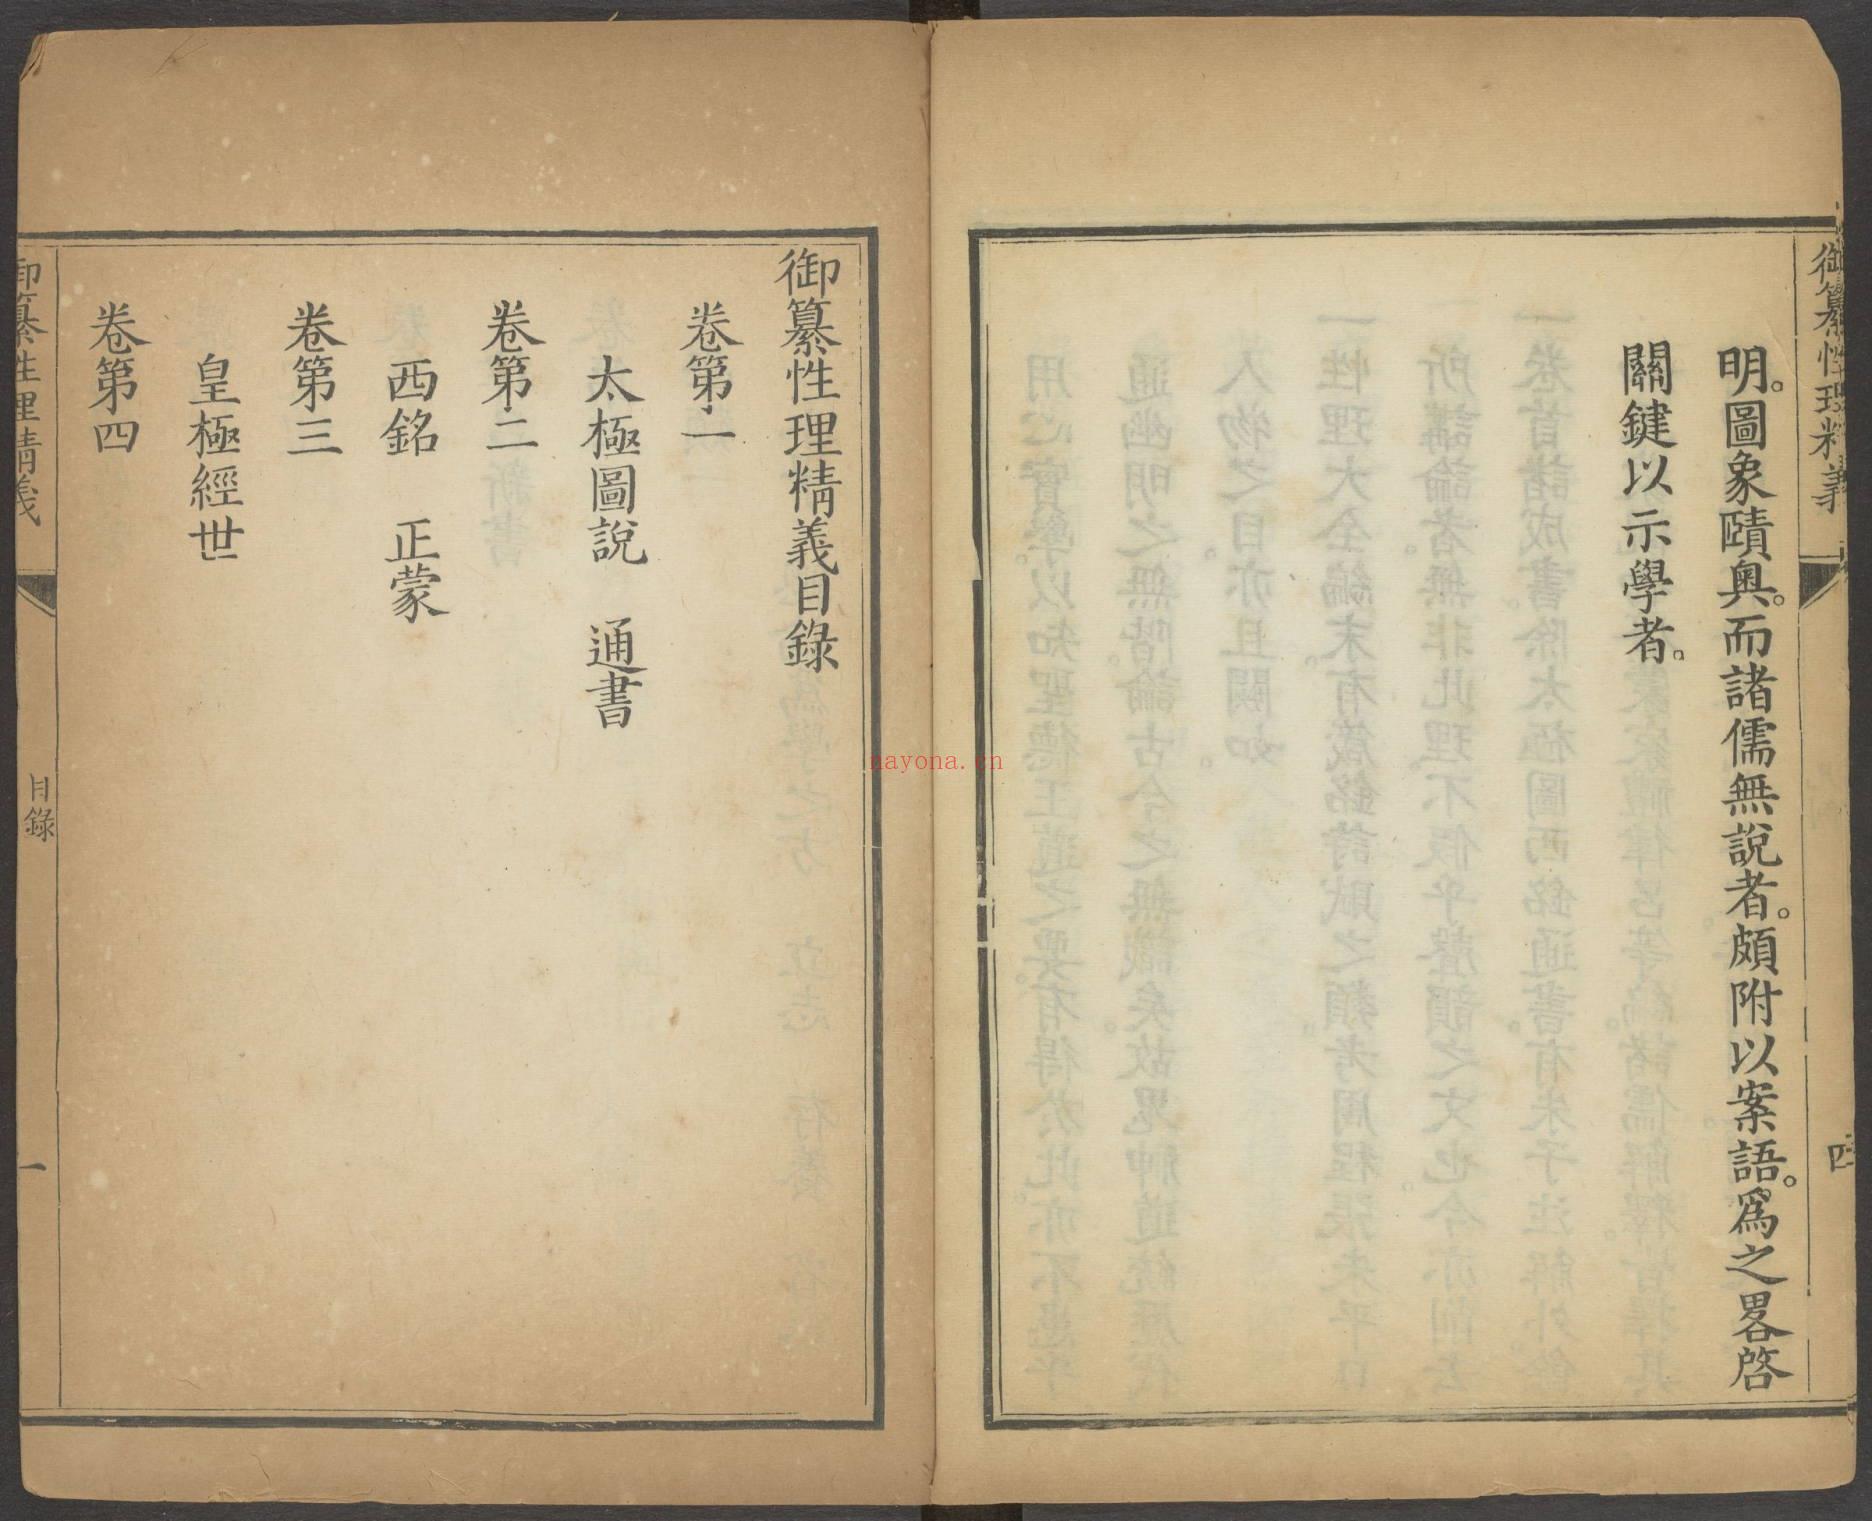 御纂性理精義
四
明。圖象賾奥。而諸儒無說者。頗附以案語。爲之畧啓
關鍵以示學者。
御纂性理精義目錄
卷第一
太極圖說　通書
卷第二
西銘　正蒙
卷第三
皇極經世
卷第四
御纂性理精義
目錄
一
nayona.cn